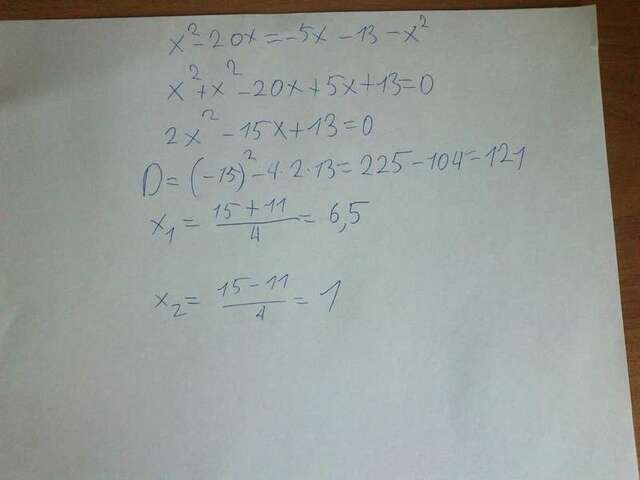 x² - 20x = -5x - 13 - x²
x² + x² - 20x + 5x + 13 = 0
2x² - 15x + 13 = 0
D = (-15)² - 4 · 2 · 13 = 225 - 104 = 121
x₁ = (15 + 11)/4 = 6,5
x₂ = (15 - 11)/4 = 1